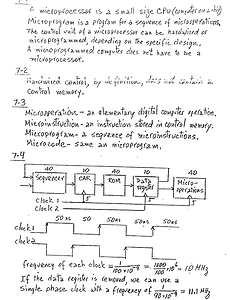 A microprocessor is a small size CPU (computer on a chip)
Microprogram is a program for a sequence of microoperations.
The control unit of a microprocessor can be hardwired or
microprogrammed, depending on the specific design.
A microprogrammed computer does not have to be a
microprocessor.
7-2
Hardwired control, by definition, does not contain a
control memory.
7-3
Microoperation - an elementary digital computer operation.
Microinstruction - an instruction stored in control memory.
Microprogram - a sequence of microinstructions.
Microcode - same as microprogram.
7-4
40 10 40 10 40
Sequencer CAR ROM Data register Micro-operations
clock 1
clock 2
50 ns 50 ns 50 ns 50 ns
clock 1
clock 2
frequency of each clock = 1/100×10⁻⁹ = 1000/100 ×10⁶ = 10 MHz
If the data register is removed, we can use a
single phase clock with a frequency of 1/90×10⁻⁹ = 11.1 MHz